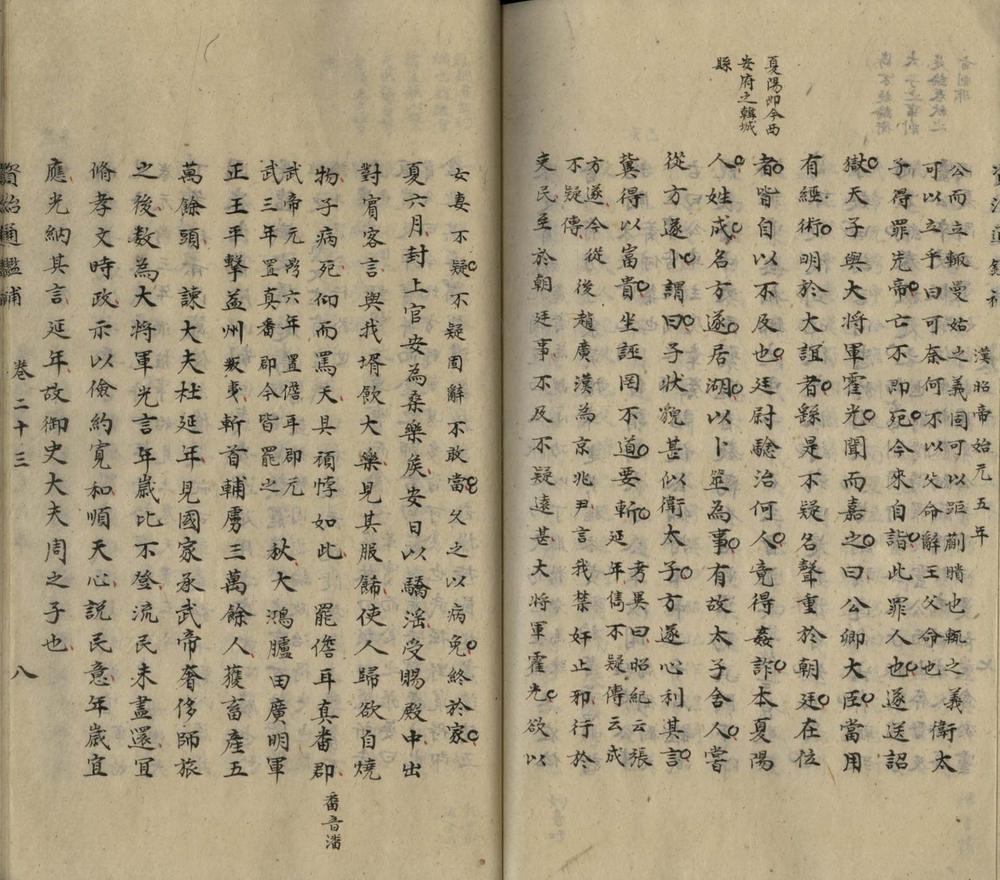 夏陽即今西
安府之韓城
縣
漢昭帝始元五年
公而立輒曼姑之義固可以距蒯聵也輒之義
可以立乎曰可奈何不以父命辭王父命也
衛太
子得罪先帝亡不即死今來自詣此罪人也遂送詔
獄天子與大將軍霍光聞而嘉之曰公卿大臣當用
有經術明於大誼者繇是不疑名聲重於朝廷在位
者皆自以不及也廷尉驗治何人竟得姦詐本夏陽
人姓成名方遂居湖以卜筮為事有故太子舍人嘗
從方遂卜謂曰子狀貌甚似衛太子方遂心利其言
冀得以富貴坐誣罔不道要斬
考異曰昭紀云張
延年雋不疑傳云成
方遂今從
不疑傳
後趙廣漢為京兆尹言我禁奸止邪行於
吏民至於朝廷事不及不疑遠甚大將軍霍光欲以
女妻不疑不疑固辭不敢當久之以病免終於家
夏六月封上官安為桑樂侯安日以驕滛受賜殿中出
對賓客言與我壻飲大樂見其服飾使人歸欲自燒
物子病死仰而罵天其頑悖如此
罷儋耳真番郡
番音潘
武帝元鼎六年置儋耳郡元
武三年置真番郡今皆罷之
秋大鴻臚田廣明軍
正王平擊益州叛夷斬首輔虜三萬餘人獲畜產五
萬餘頭
諫大夫杜延年見國家承武帝奢侈師旅
之後数為大將軍光言年歲比不登流民未盡還冝
脩孝文時政示以儉約寬和順天心説民意年歲宜
應光納其言延年故御史大夫周之子也
資治通鑑補
卷二十三
八